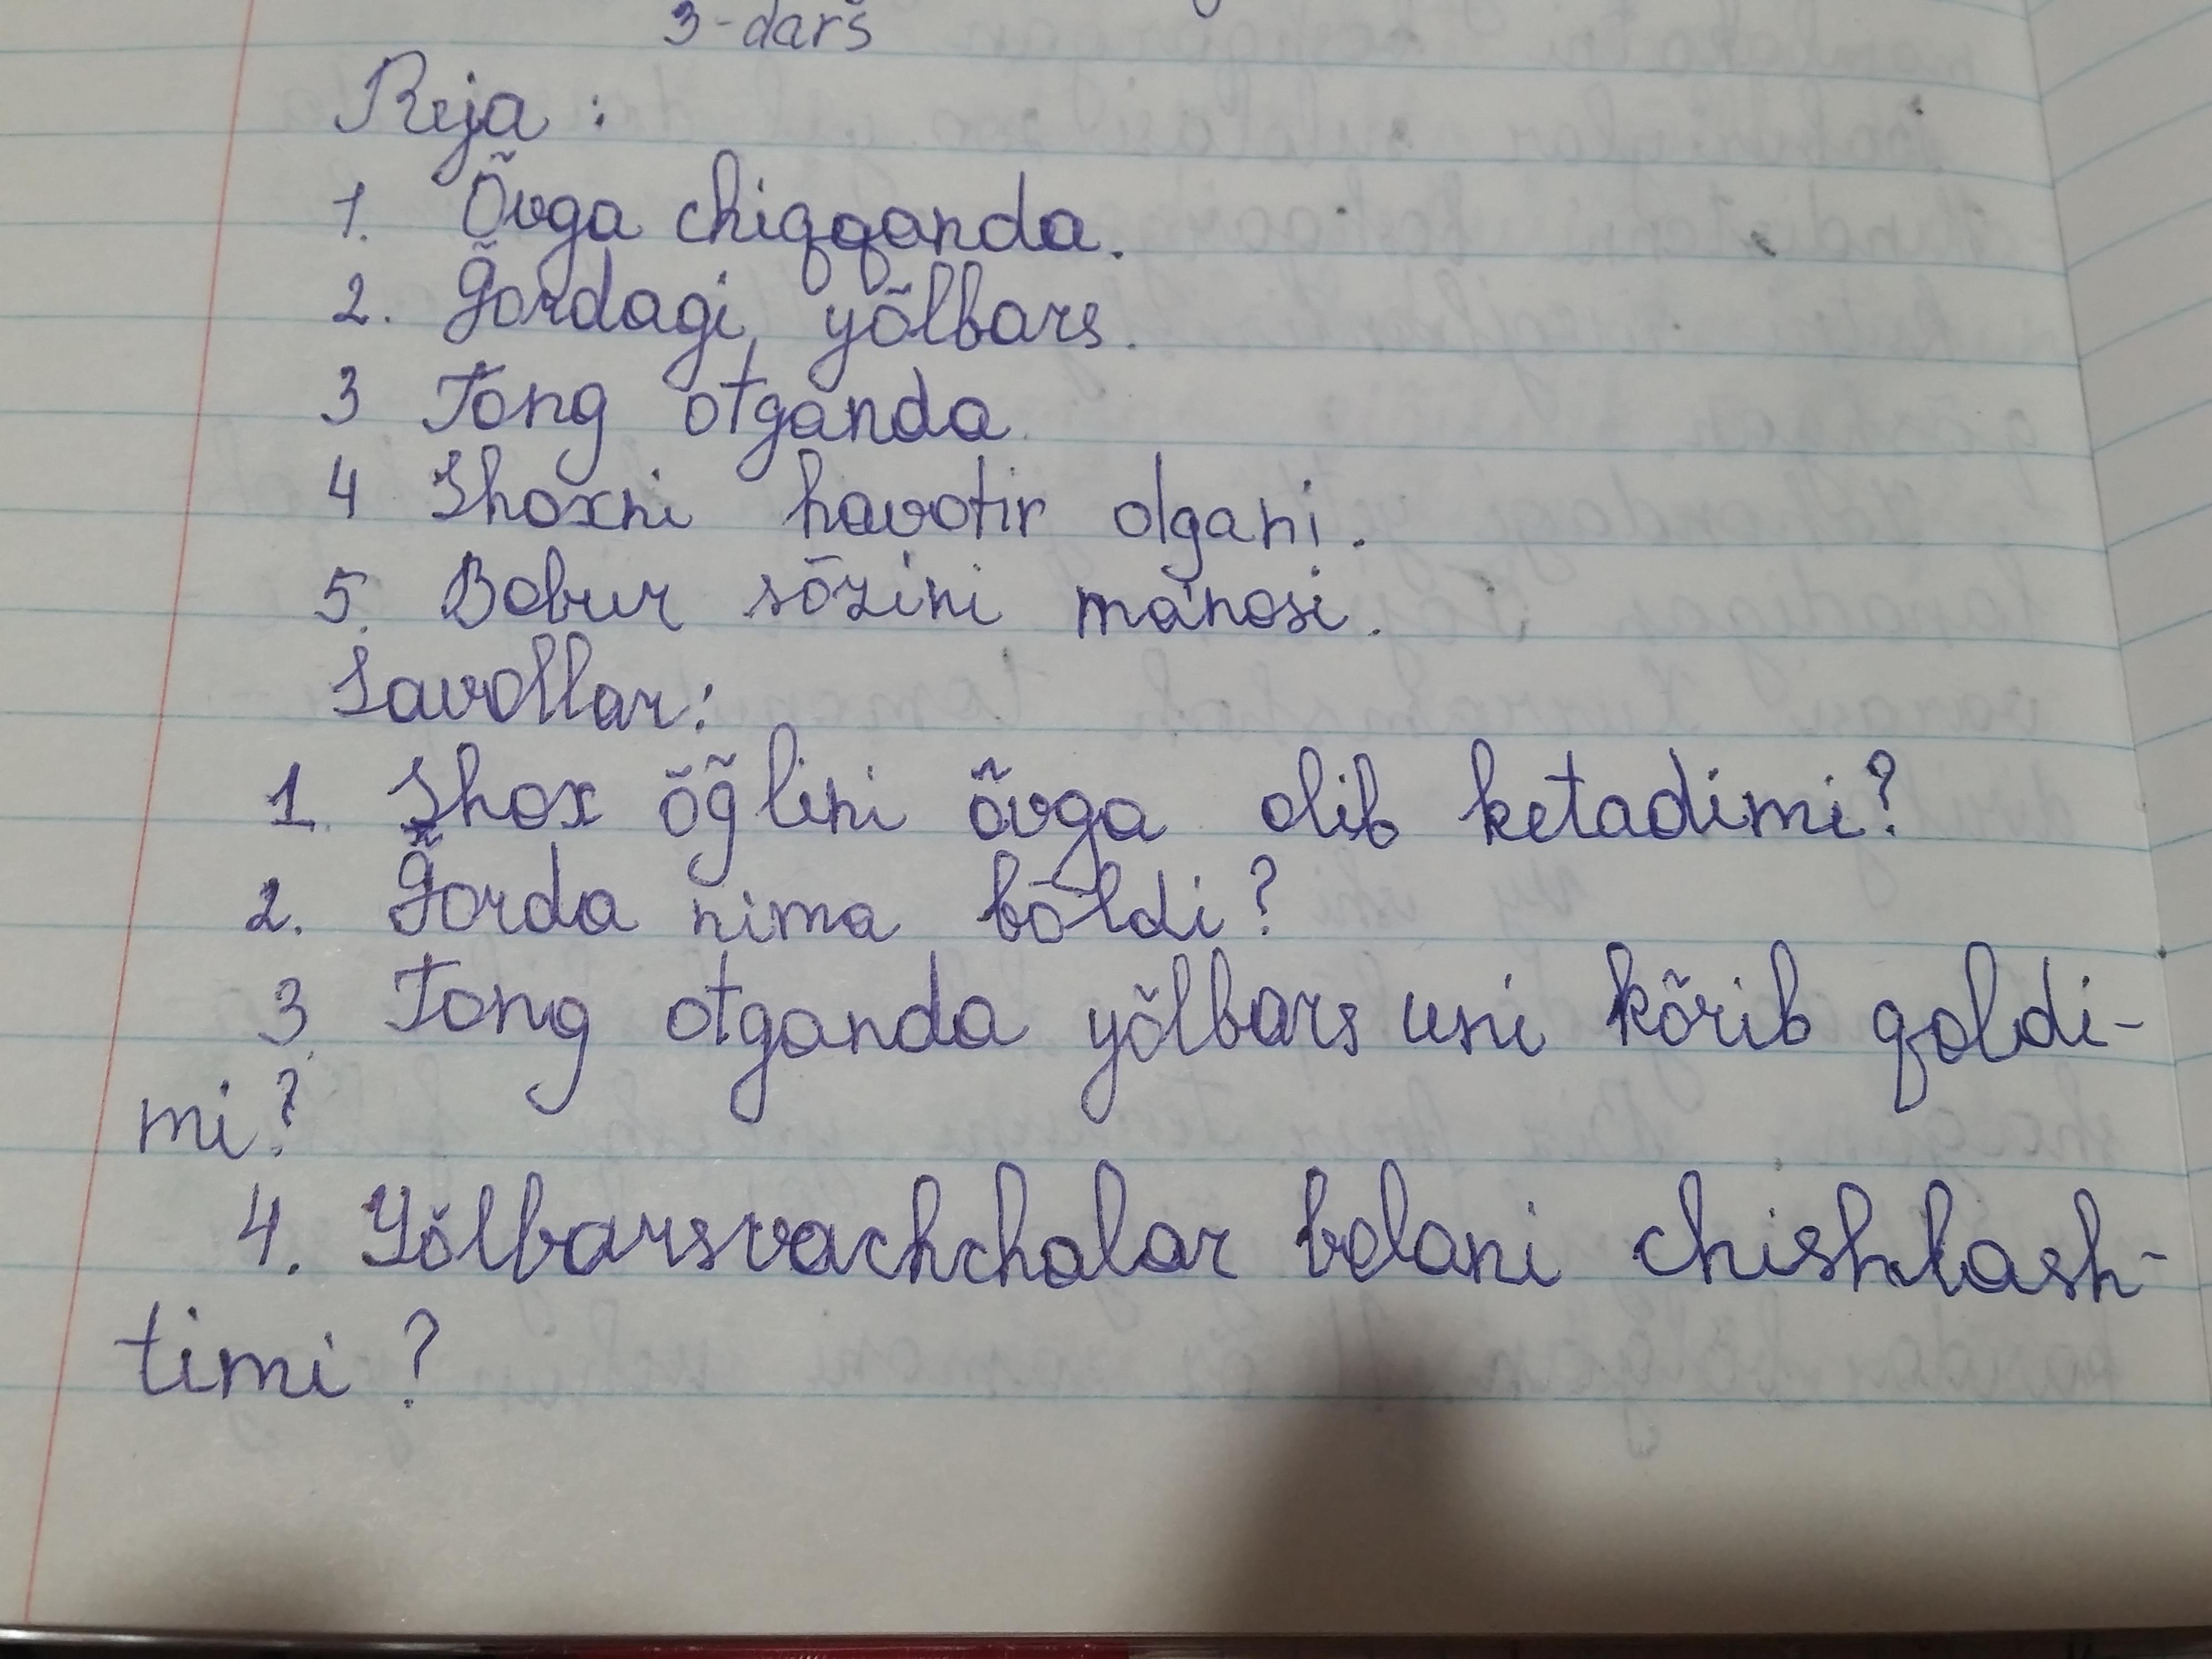 3-dars
Reja:
1. Õvga chiqqanda.
2. G̃ordagi yõlbars.
3 Tong otganda
4 Shoxni havotir olgani.
5. Bobur sõzini ma'nosi.
Savollar:
1. Shox õg̃lini õvga olib ketadimi?
2. G̃orda nima bõldi?
3. Tong otganda yõlbars uni kõrib qoldi-
mi?
4. Yõlbarsvachchalar bolani chishlash-
timi?